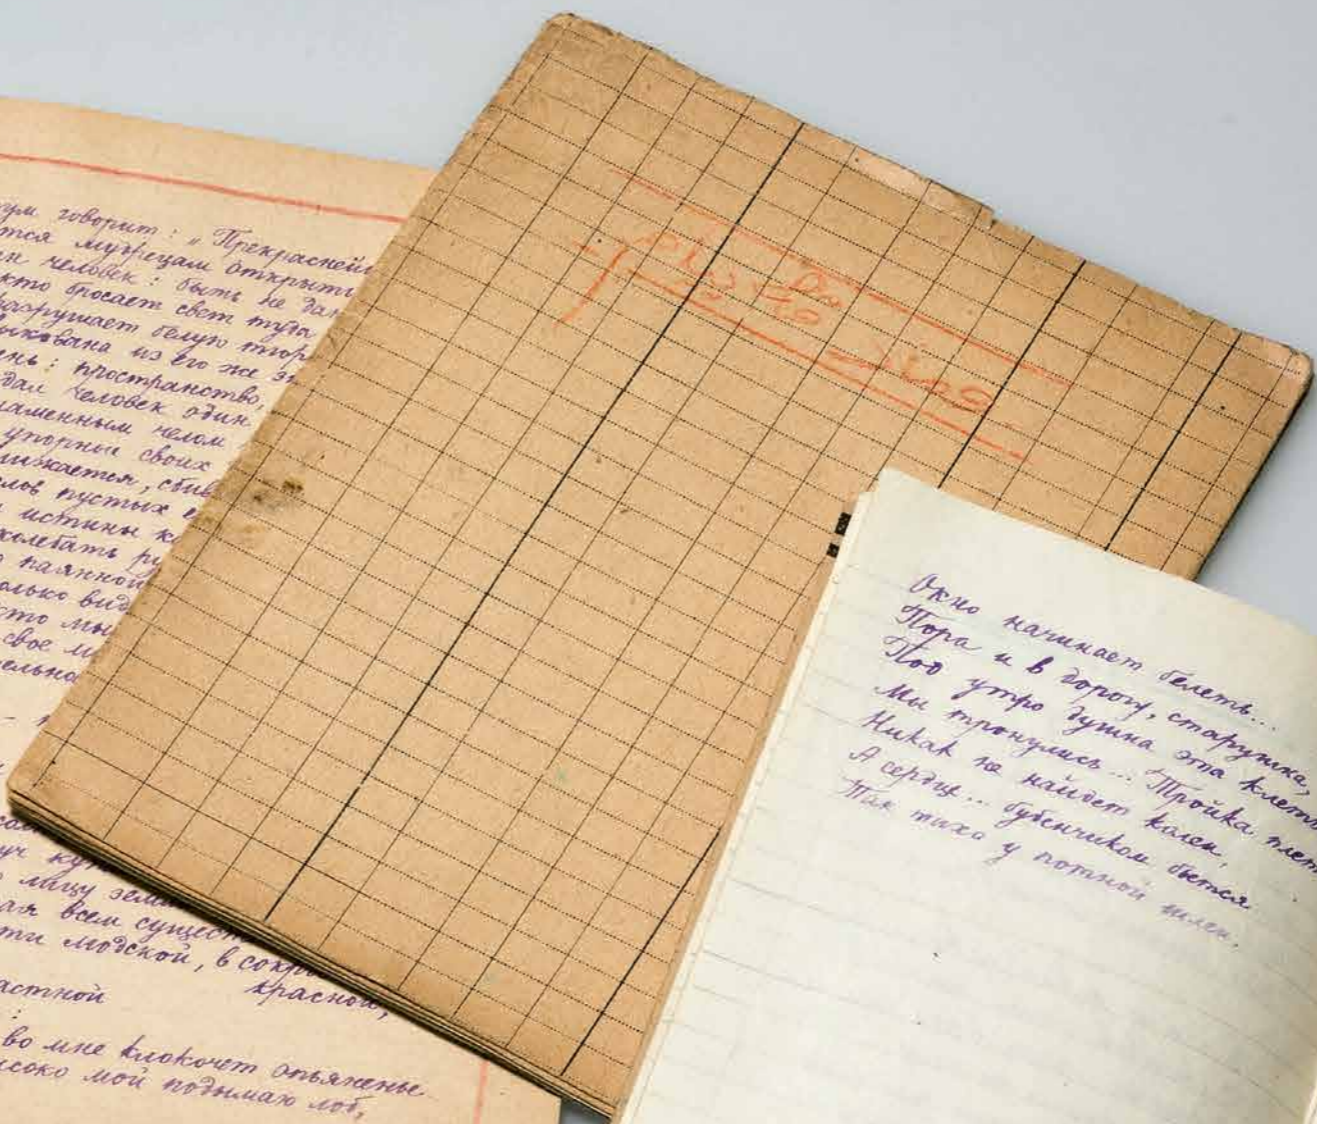 ум говорит: „Прекрасней
тся мудрецам открыть
н человек: быть не да
кто бросает свет туда
разрушает белую тюр
ыкована из его же
нь: пространство,
дал человек один
каменным челом
упорные своих
ижается, сбив
лов пустых
и истины к
колебать ру
паянной
олько вид
сто мы
свое м
ельно
уч ку
лицу зем
ая всем сущест
ти людской, в сокр
красной,
астной
во мне клокочет опьяненье
ысоко мой подымаю лоб,
Окно начинает белеть...
Пора и в дорогу, старушка,
Под утро душна эта клеть
Мы тронулись... Тройка плет
Никак не найдет колеи,
А сердце... бубенчиком бьется
Так тихо у потной шлеи.